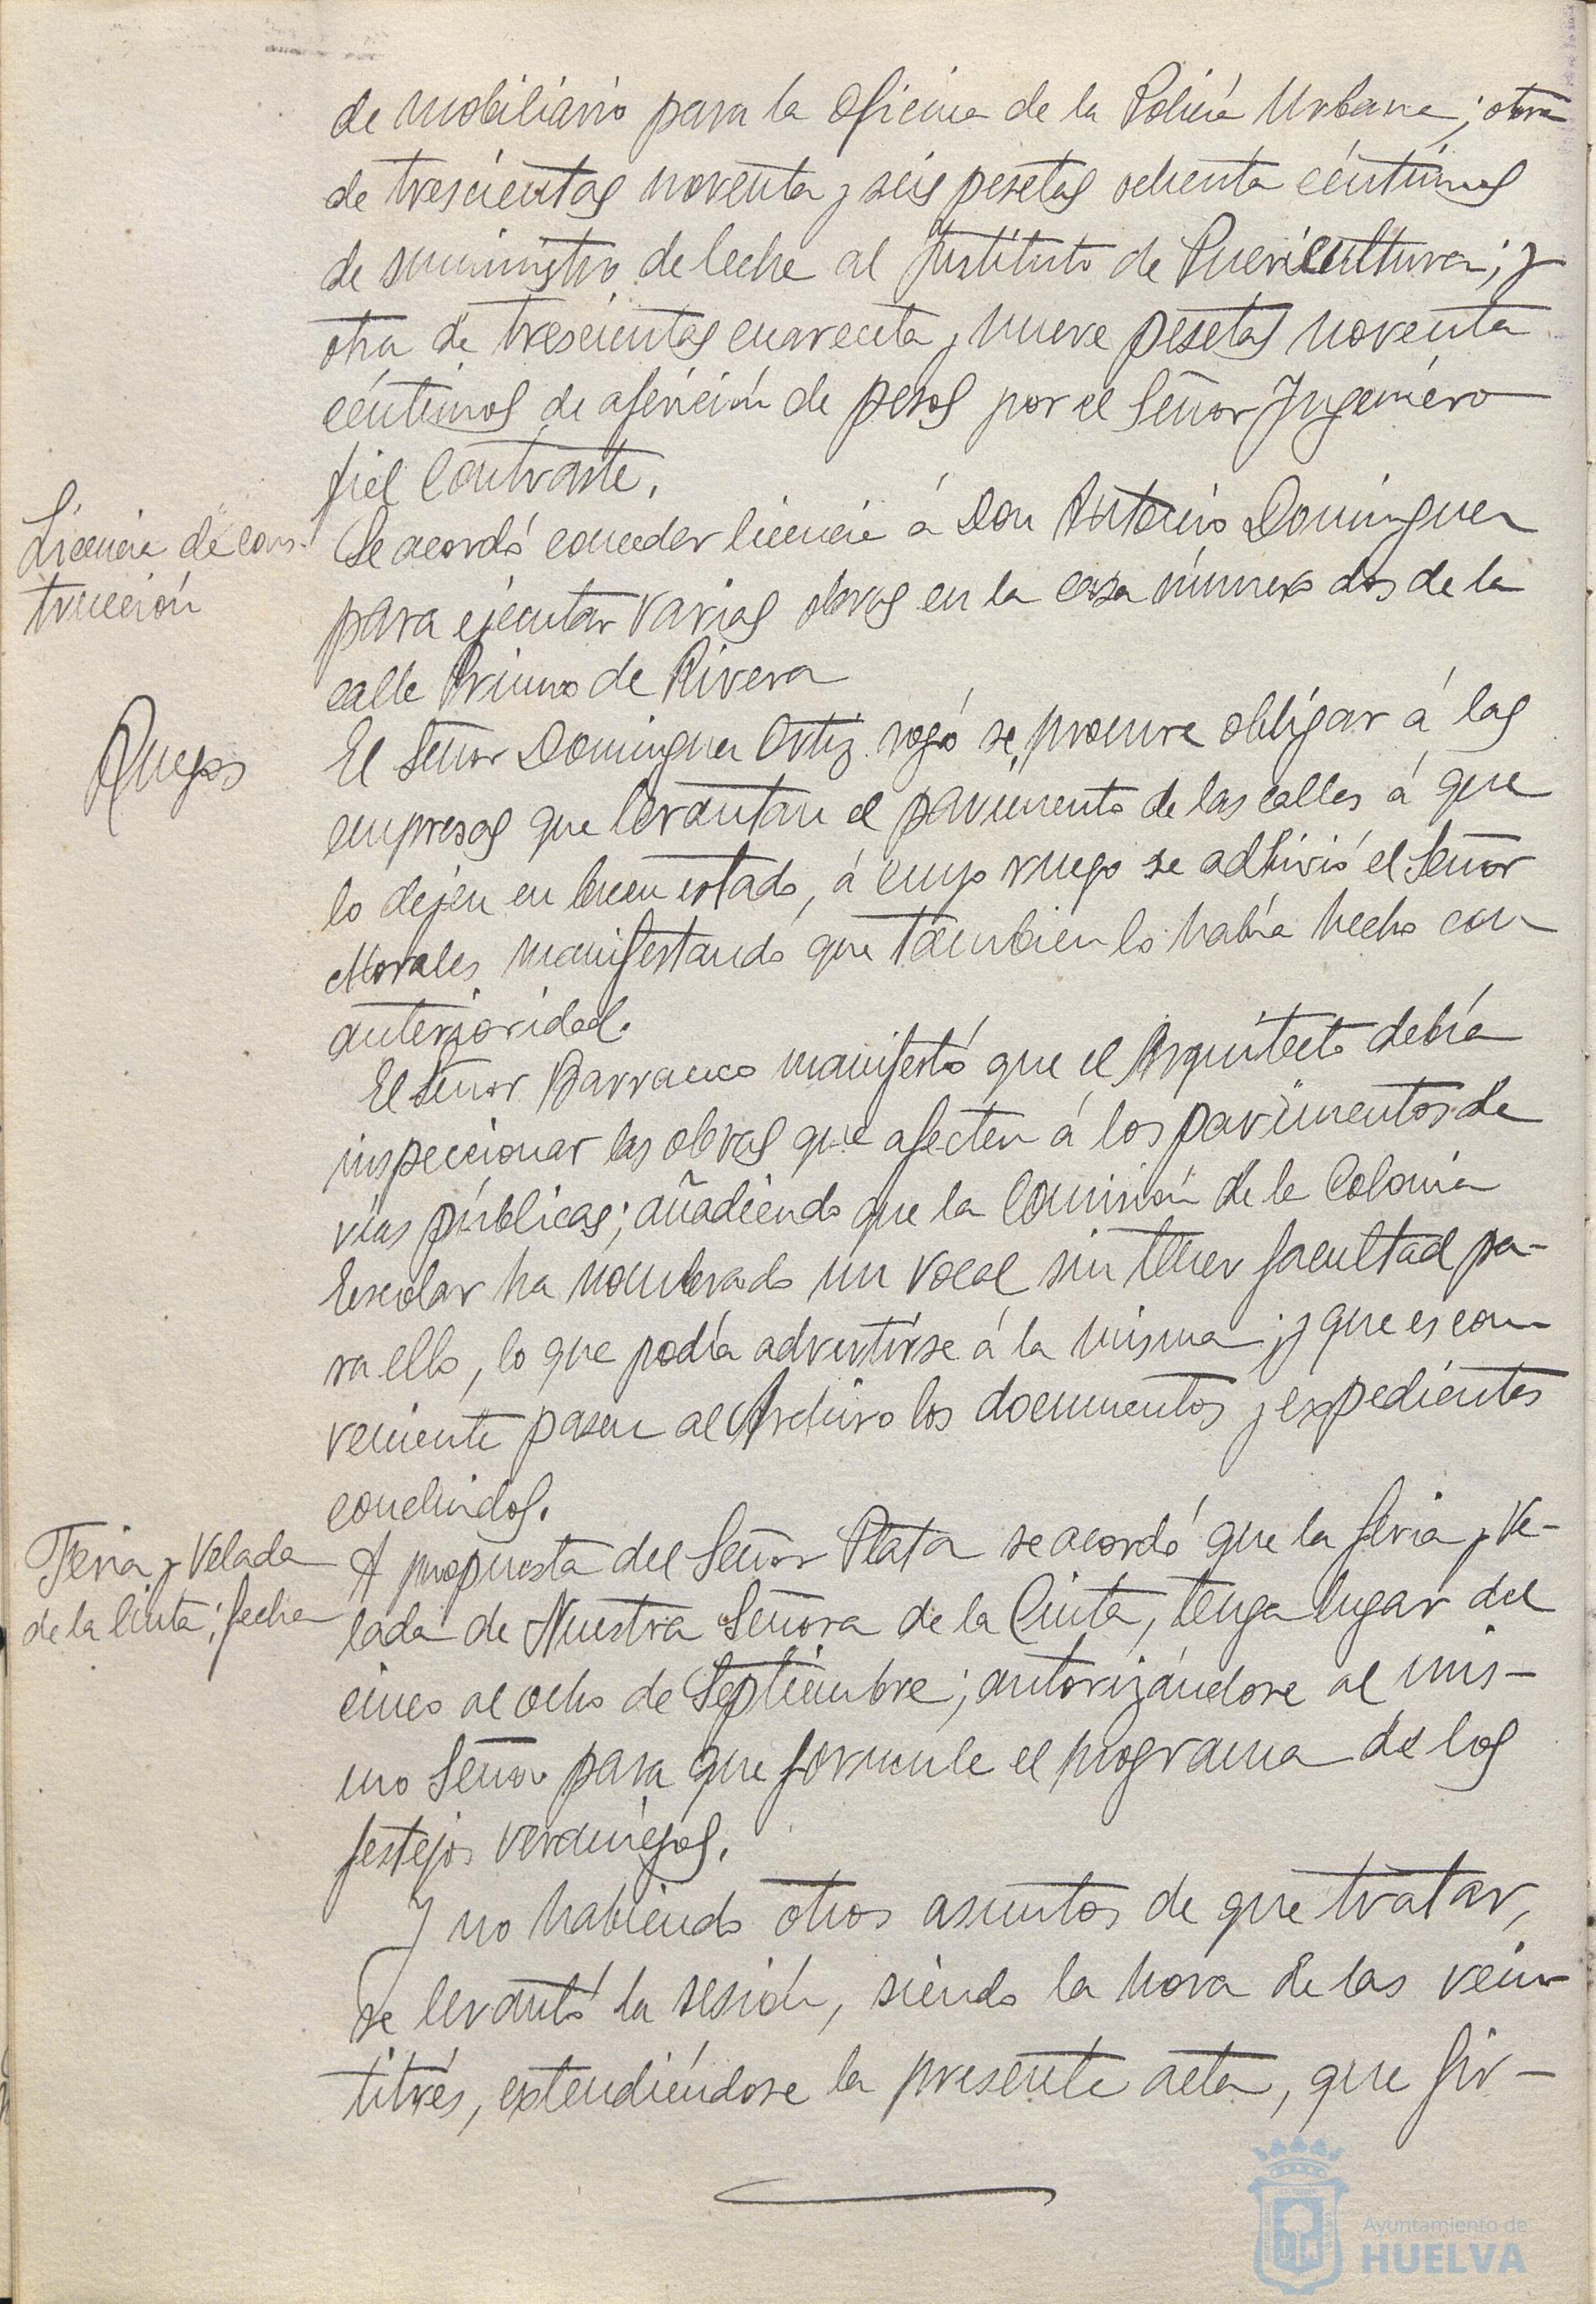 de mobiliario para la oficina de la Policía Urbana; otra
de trescientas noventa y seis pesetas ochenta céntimos
de suministro de leche al Instituto de Puericultura; y
otra de trescientas cuarenta y nueve pesetas noventa
céntimos de aferición de pesos por el Señor Ingeniero
fiel Contraste.
Licencia de cons-
trucción
Se acordó conceder licencia á Don Antonio Dominguez
para ejecutar varias obras en la casa número dos de la
calle Primo de Rivera
Ruegos
El Señor Dominguez Ortiz rogó se procure obligar á las
empresas que levantan el pavimento de las calles á que
lo dejen en buen estado, á cuyo ruego se adhirió el Señor
Morales, manifestando que también lo había hecho con
anterioridad.
El Señor Barranco manifestó que el Arquitecto debía
inspeccionar las obras que afecten á los pavimentos de
vías públicas; añadiendo que la Comisión de la Colonia
Escolar ha nombrado un vocal sin tener facultad pa-
ra ello, lo que podía advertirse á la misma; y que es con-
veniente pasen al Archivo los documentos y expedientes
concluidos.
Feria y Velada
de la Cinta; fecha
A propuesta del Señor Plata se acordó que la feria y Ve-
lada de Nuestra Señora de la Cinta, tenga lugar del
cinco al ocho de Septiembre; autorizándose al mis-
mo Señor para que formule el programa de los
festejos veraniegos.
Y no habiendo otros asuntos de que tratar,
se levantó la sesión, siendo la hora de las vein-
titrés, extendiéndose la presente acta, que fir-
Ayuntamiento de
HUELVA